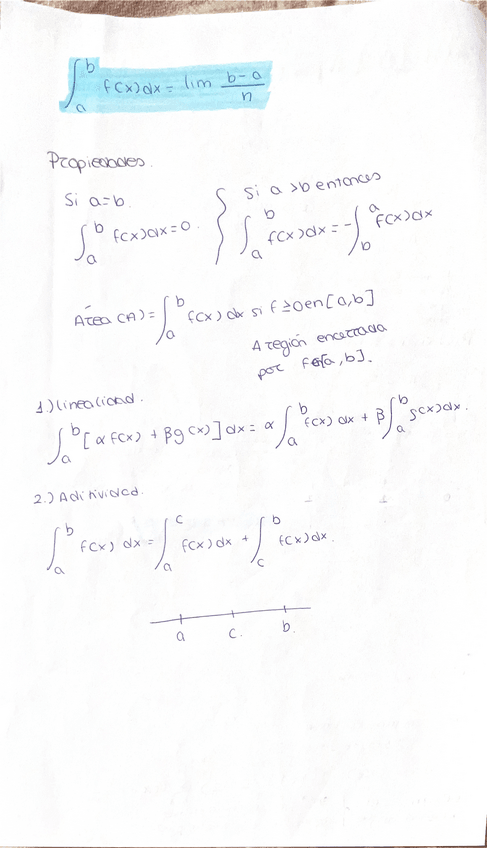 ∫_a^b f(x)dx = lim (b-a)/n
Propiedades.
Si a=b.
∫_a^b f(x)dx=0.
Si a>b entonces
∫_a^b f(x)dx = -∫_b^a f(x)dx
Área (A) = ∫_a^b f(x) dx si f ≥ 0 en [a,b]
A región encerrada
por f en [a,b].
1) linealidad.
∫_a^b [αf(x) + βg(x)] dx = α ∫_a^b f(x) dx + β ∫_a^b g(x) dx.
2.) Aditividad.
∫_a^b f(x) dx = ∫_a^c f(x) dx + ∫_c^b f(x) dx.
a c. b.